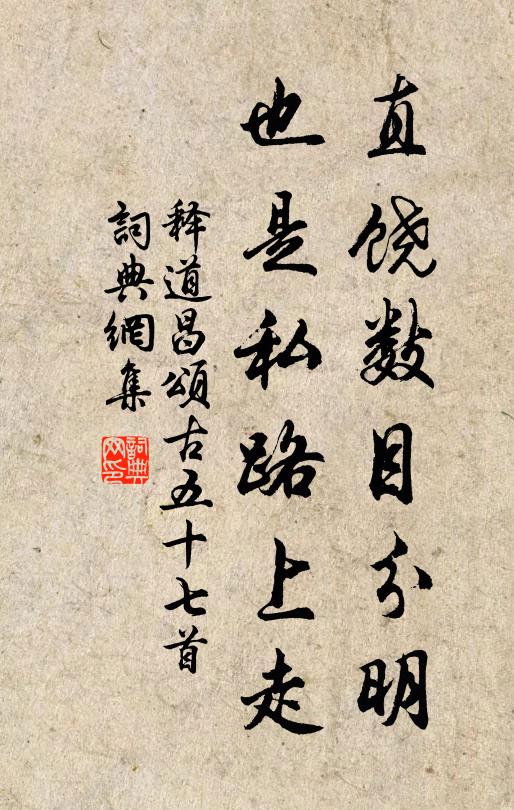 直饶数目分明
也是私路上走
释道昌頌古五十七首
詞典網集
詞典
网印